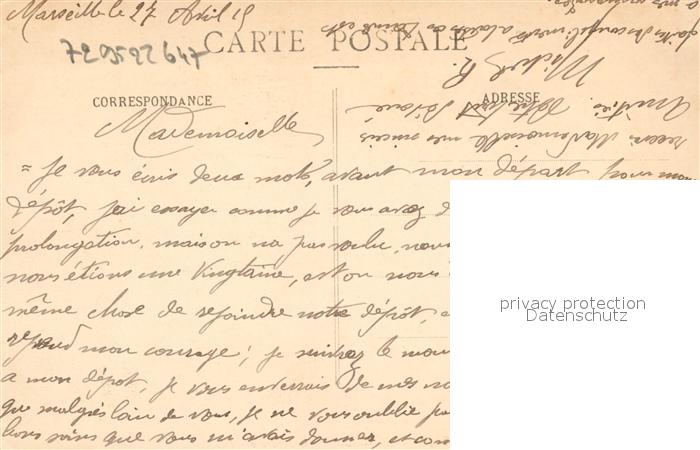 Marseille le 27 Avril 15
729522647
CARTE POSTALE
CORRESPONDANCE
ADRESSE
Mademoiselle
= Je vous écris deux mots, avant mon départ pour mon
dépôt, j'ai essayer comme je vous avez d
prolongation, mais on na pas voulu, nous
nous étions une vingtaine, est on nous
même chose de rejoindre notre dépôt,
mon courage; je le
a mon dépôt, je vous enverrais de mes no
que malgrés loin de vous, je ne vous oublie pas
bons soins que vous m'avais donner, et com
recevez Mademoiselle mes sincères
Amitiés
Michel R.
a mes
privacy protection
Datenschutz